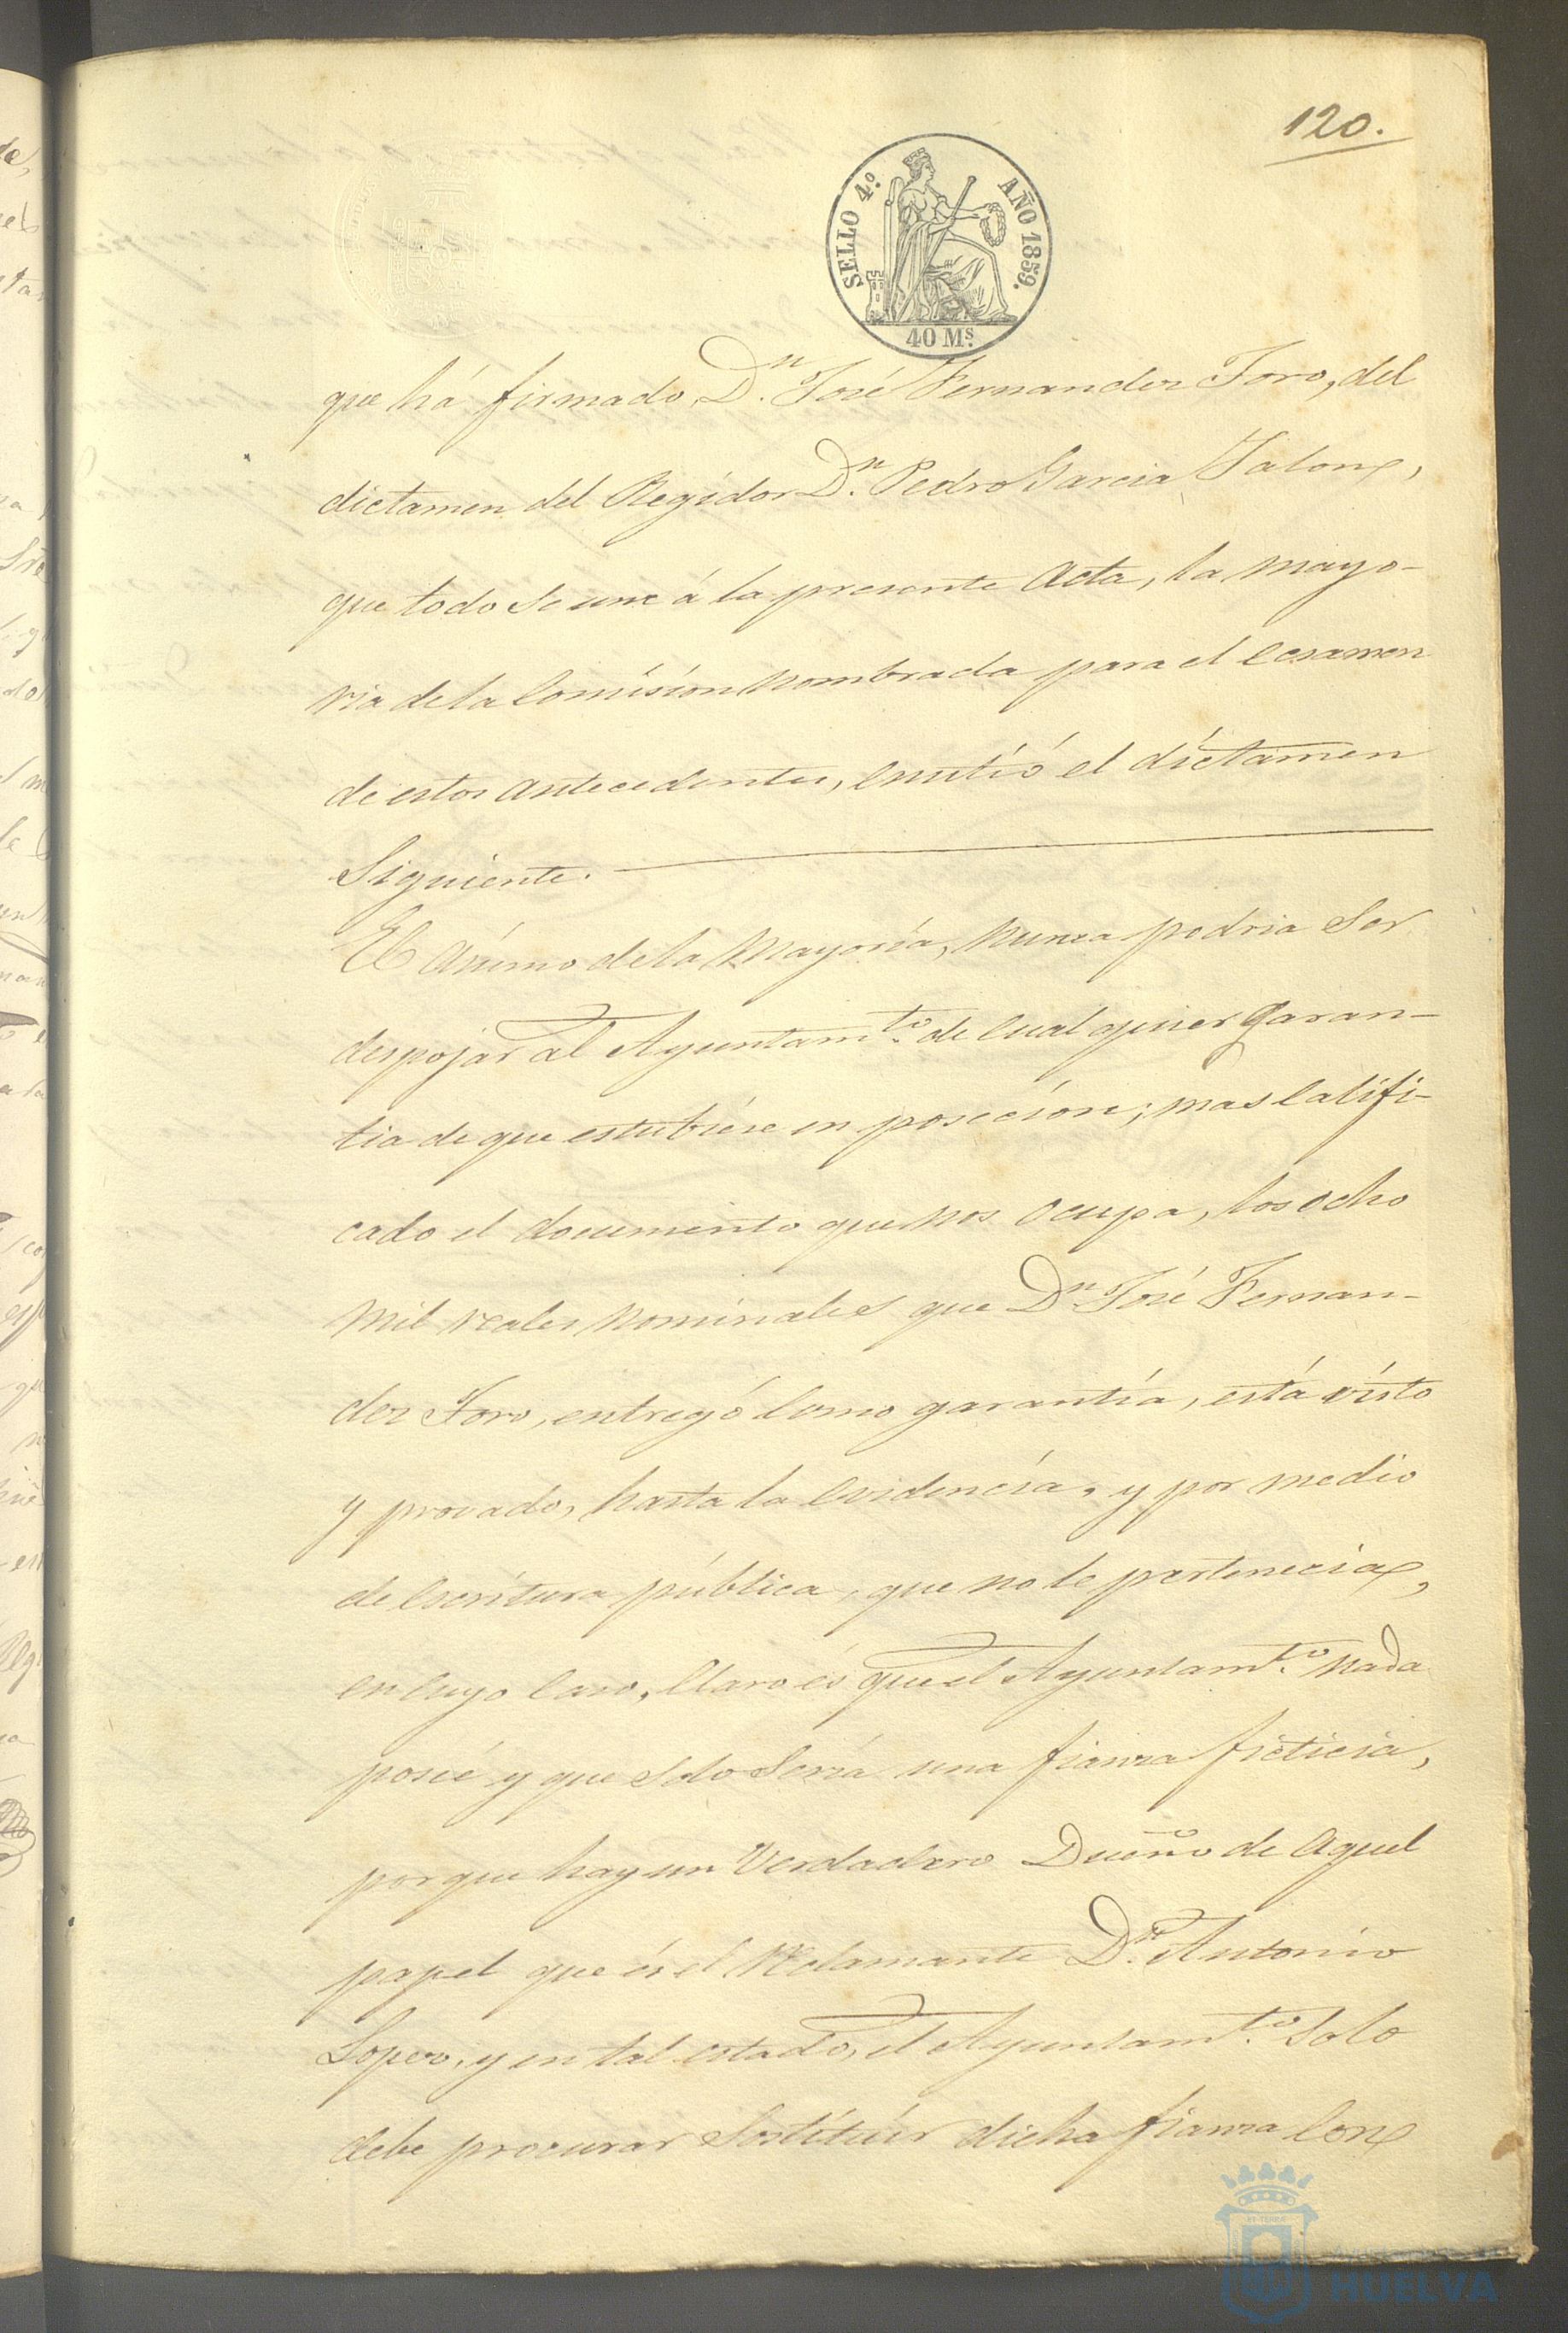 120.
SELLO 4º. AÑO 1859.
40 Ms.
que há firmado Dn. José Fernandez Toro, del
dictamen del Regidor Dn. Pedro Garcia Jalon,
que todo se une á la presente Acta, la mayo-
ria de la Comisión nombrada para el Ecsamen
de estos antecedentes, emitió el dictamen
Siguiente.
El Animo de la Mayoría, nunca podria Ser
despojar al Ayuntamto. de Cualquier garan-
tia de que estubiése en poseción; mas Calífi-
cado el documento que nos ocupa, los ocho
mil reales nominales que Dn. José Fernan-
dez Toro, entregó Como garantía, está visto
y provado, hasta la Evidencia, y por medio
de Escritura pública, que no le pertenecia,
en Cuyo Caso, Claro és que el Ayuntamto. nada
poseé y que solo Sería una fianza ficticia,
porque hay un Verdadero Dueño de aquel
papel que és el Reclamante Dn. Antonio
Lopez, y en tal estado, el Ayuntamto. Solo
debe procurar Sostituir dicha fianza Con
HUELVA